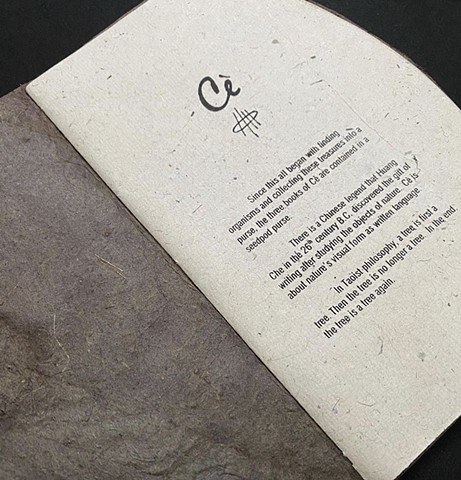 Cè
Since this all began with finding
organisms and collecting these treasures into a
purse, the three books of Cè are contained in a
seedpod purse.
There is a Chinese legend that Huang
Che in the 26th century B.C. discovered the gift of
writing after studying the objects of nature. Cè is
about nature's visual form as written language.
In Taoist philosophy, a tree is first a
tree. Then the tree is no longer a tree. In the end,
the tree is a tree again.